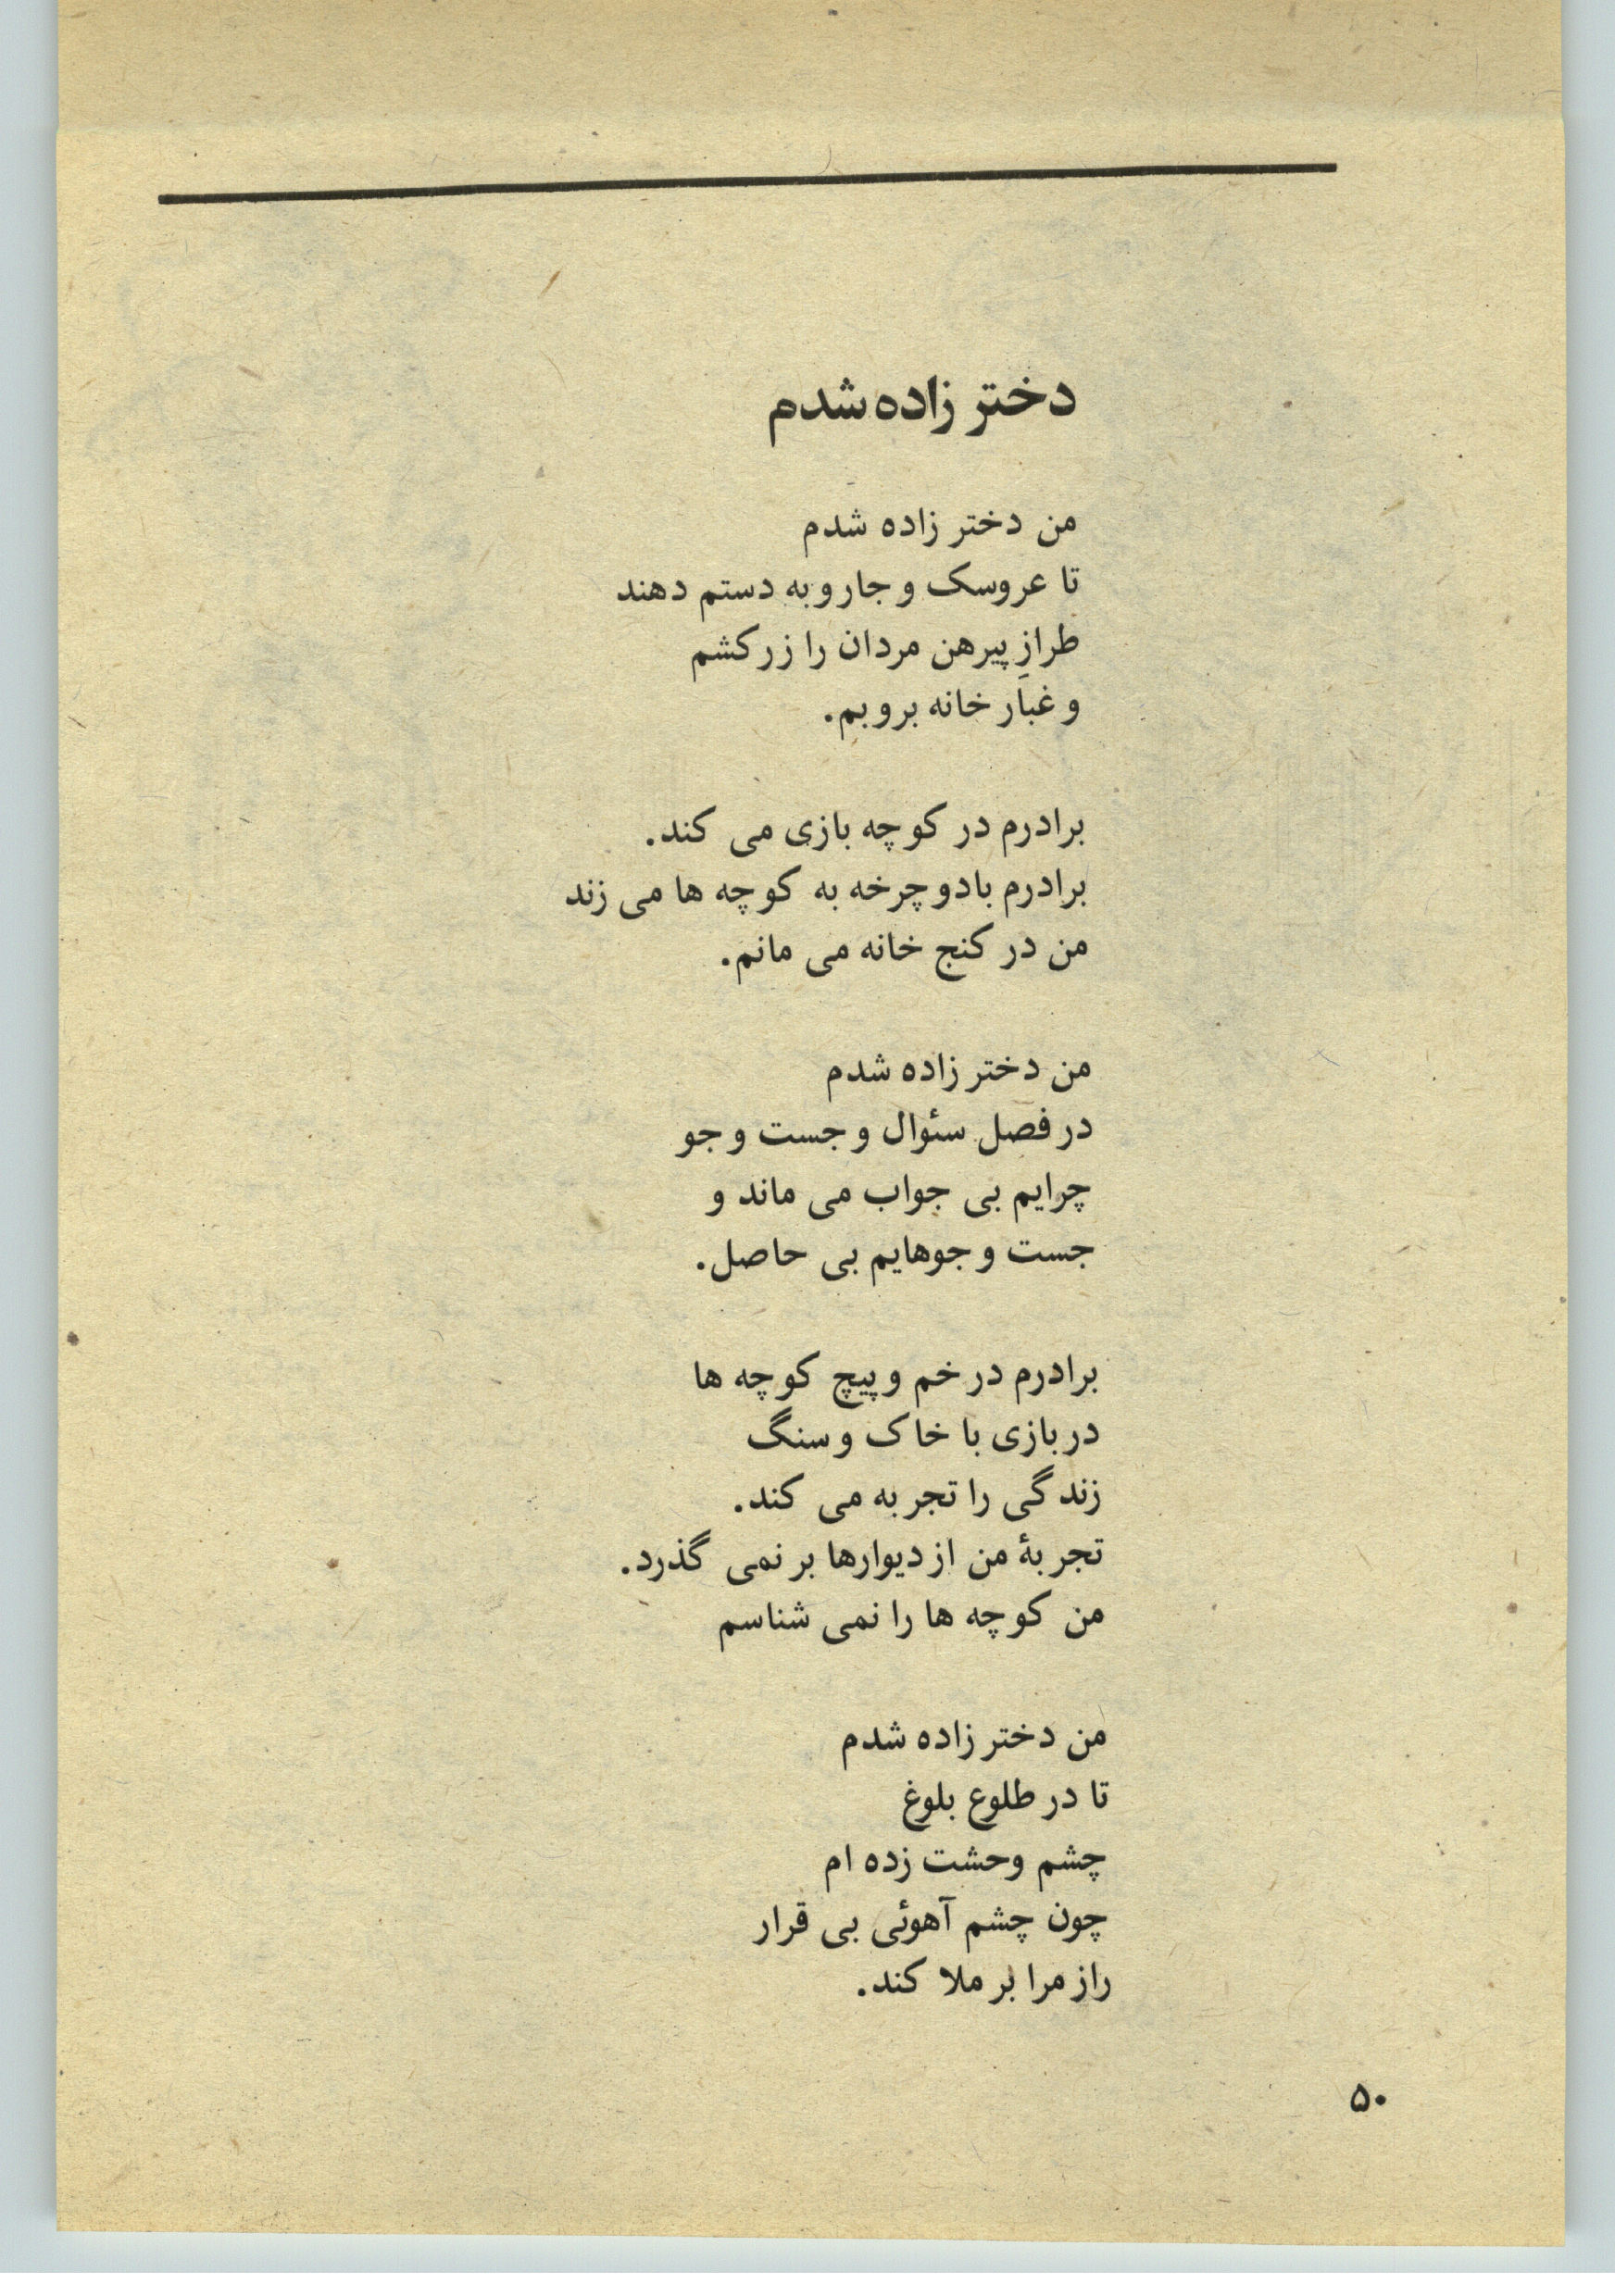 دختر زاده شدم
من دختر زاده شدم
تا عروسک و جارو به دستم دهند
طرازِ پیرهن مردان را زر کشم
و غبار خانه بروبم.
برادرم در کوچه بازی می کند.
برادرم با دوچرخه به کوچه ها می زند
من در کنج خانه می مانم.
من دختر زاده شدم
در فصل سئوال و جست و جو
چرایم بی جواب می ماند و
جست و جوهایم بی حاصل.
برادرم در خم و پیچ کوچه ها
در بازی با خاک و سنگ
زندگی را تجربه می کند.
تجربهٔ من از دیوارها بر نمی گذرد.
من کوچه ها را نمی شناسم
من دختر زاده شدم
تا در طلوع بلوغ
چشم وحشت زده ام
چون چشم آهوئی بی قرار
راز مرا بر ملا کند.
۵۰